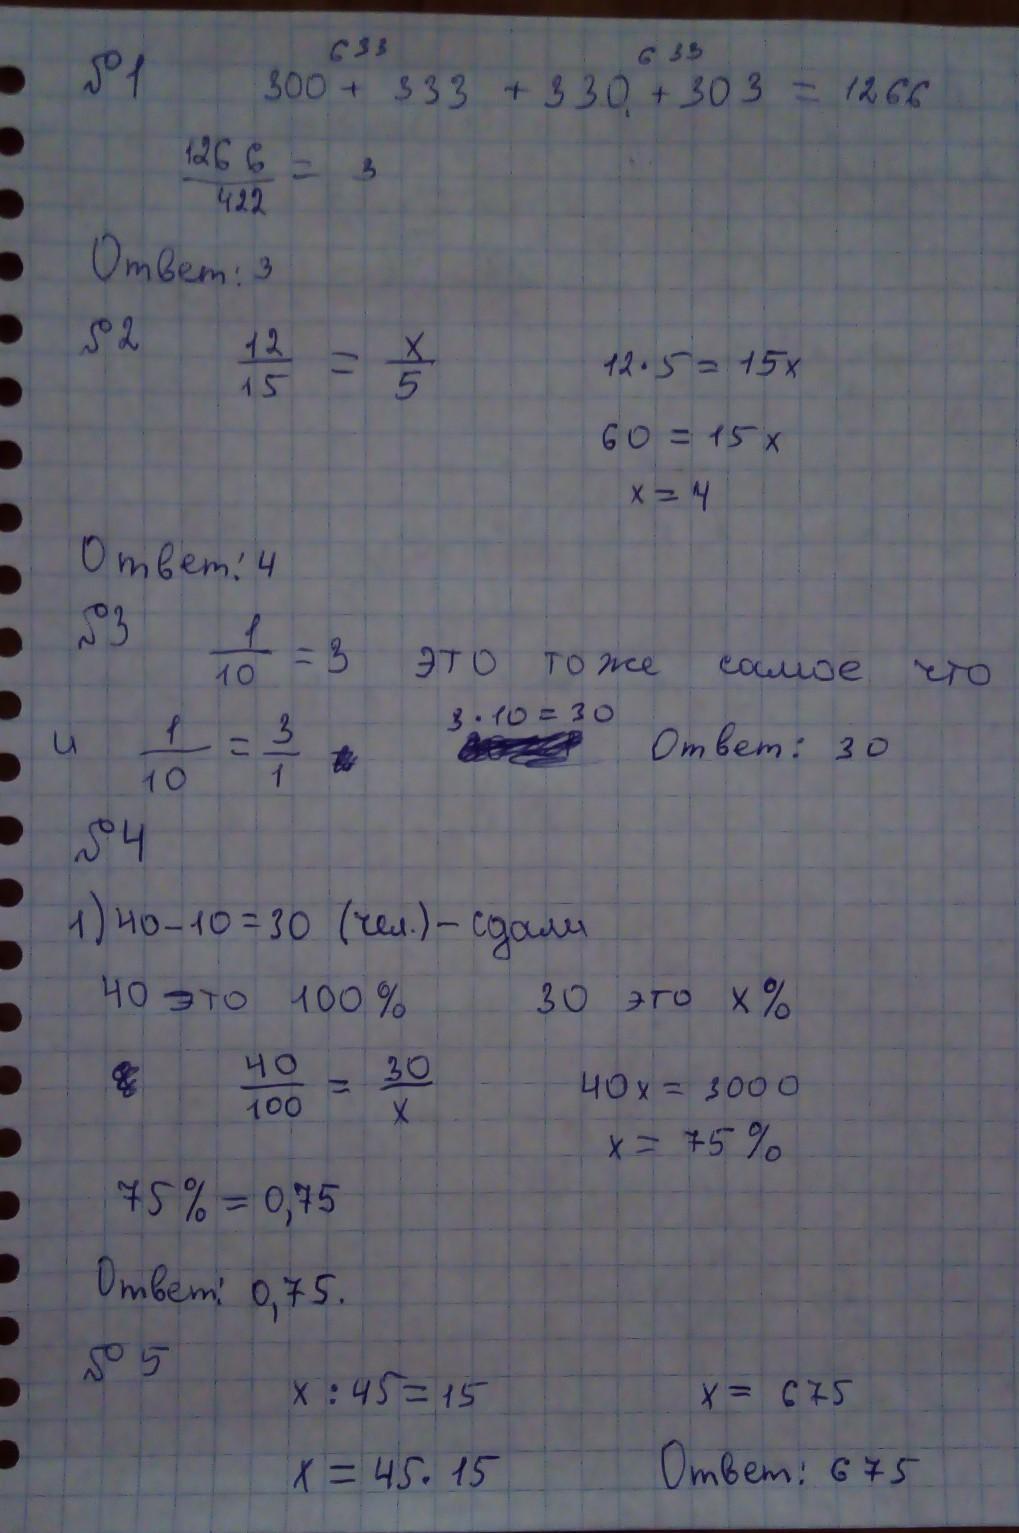 №1
633 633
300 + 333 + 330 + 303 = 1266
1266/422 = 3
Ответ: 3
№2 12/15 = x/5 12·5 = 15x
60 = 15x
x = 4
Ответ: 4
№3 1/10 = 3 это тоже самое что
и 1/10 = 3/1 3·10=30 Ответ: 30
№4
1) 40-10=30 (чел.) - сдали
40 это 100% 30 это x%
40/100 = 30/x 40x = 3000
x = 75%
75% = 0,75
Ответ: 0,75.
№5
x : 45 = 15 x = 675
x = 45·15 Ответ: 675